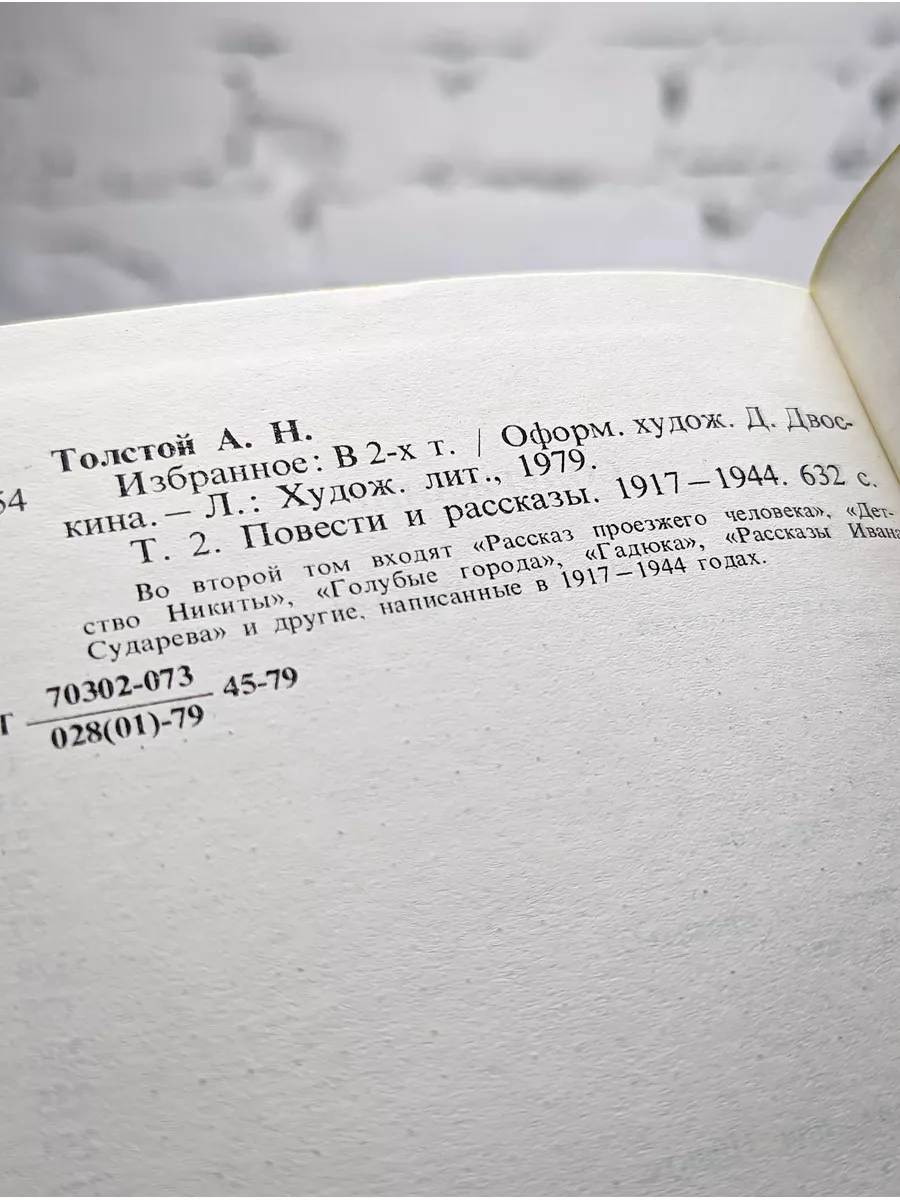 Толстой А. Н.
54 Избранное: В 2-х т. / Оформ. худож. Д. Двос-
кина. — Л.: Худож. лит., 1979.
Т. 2. Повести и рассказы. 1917—1944. 632 с.
Во второй том входят «Рассказ проезжего человека», «Дет-
ство Никиты», «Голубые города», «Гадюка», «Рассказы Ивана
Сударева» и другие, написанные в 1917—1944 годах.
70302-073
Т 45-79
028(01)-79